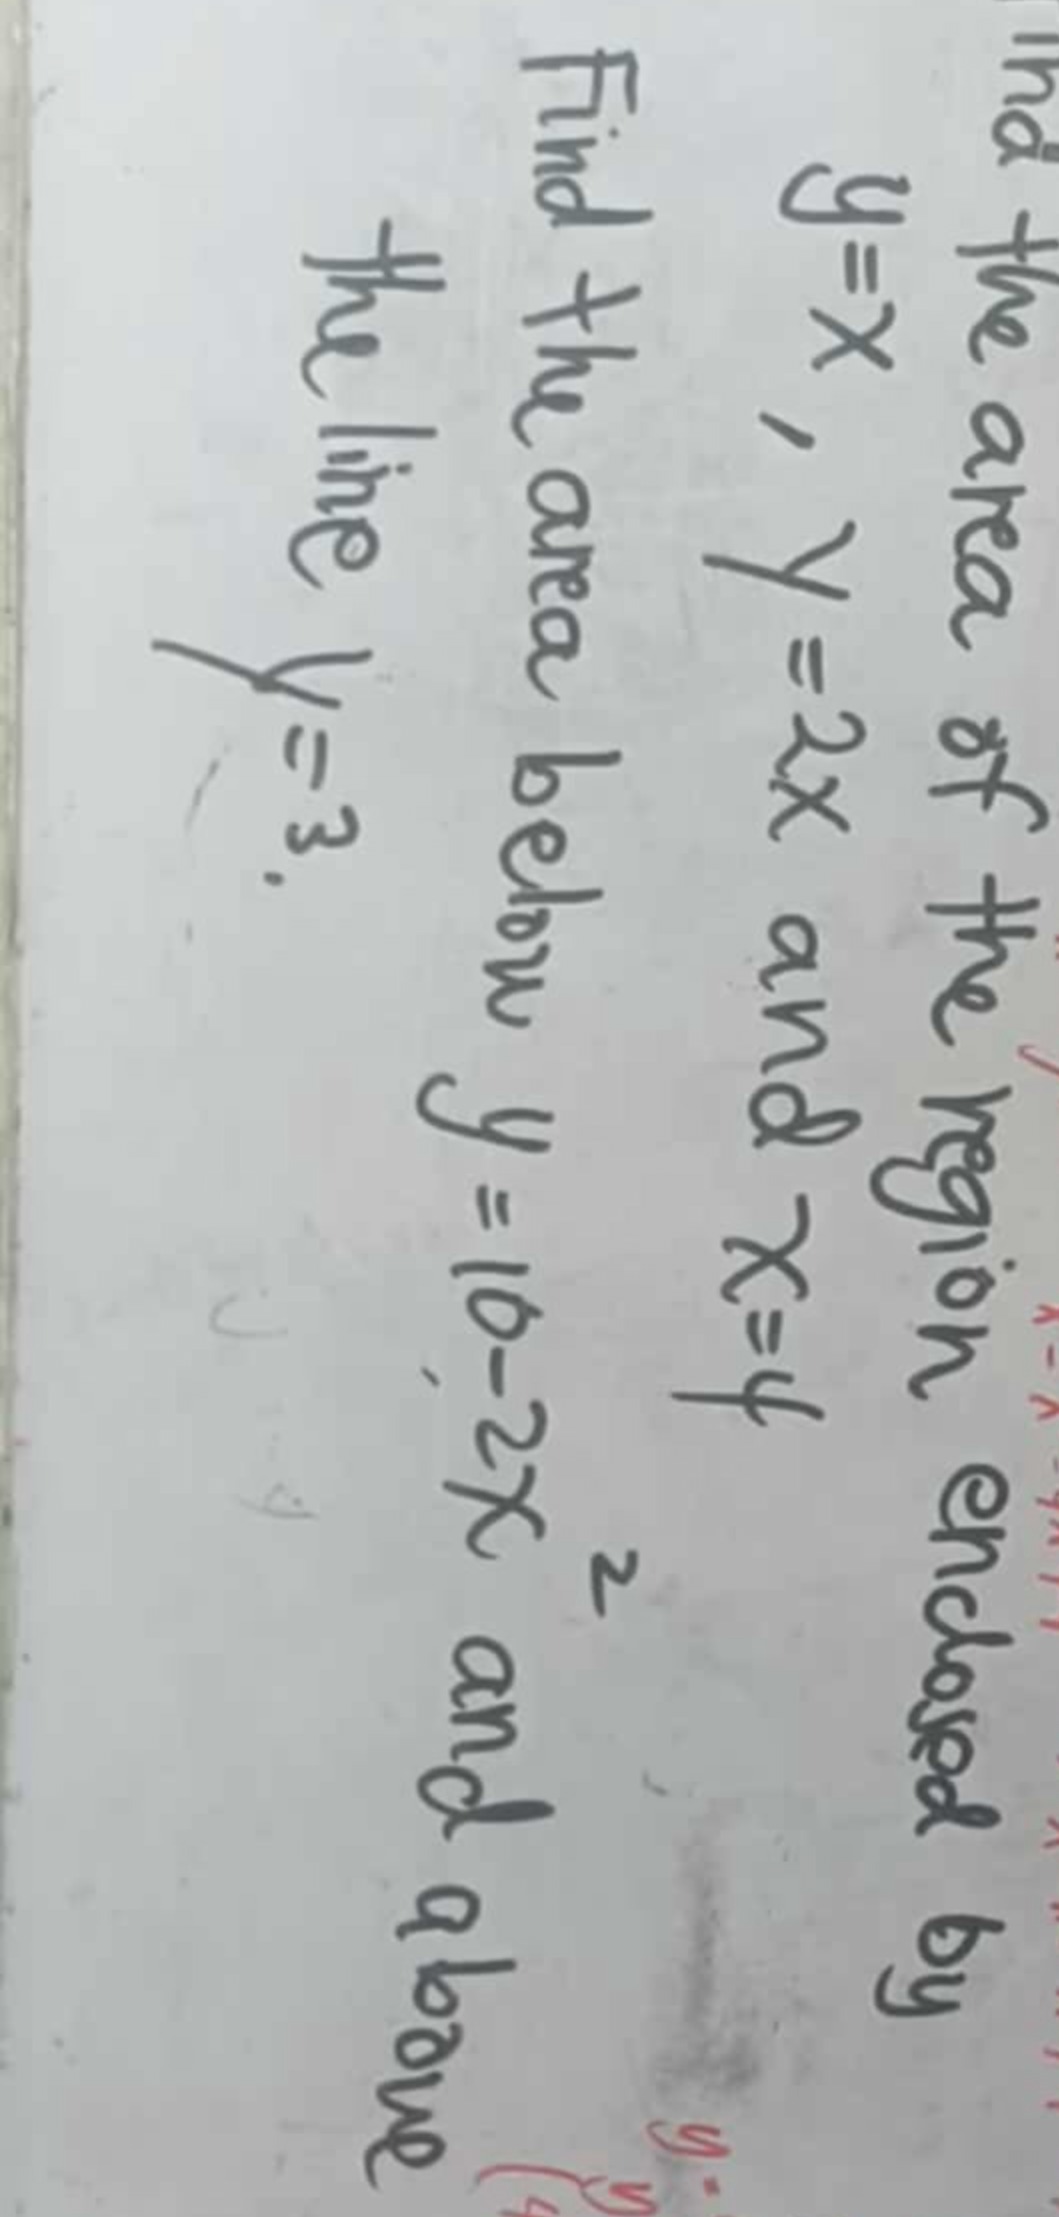 the area of the region enclosed by
y=x, y=2x and x=4
Find the area below y=10-2x² and above
the line y=3.